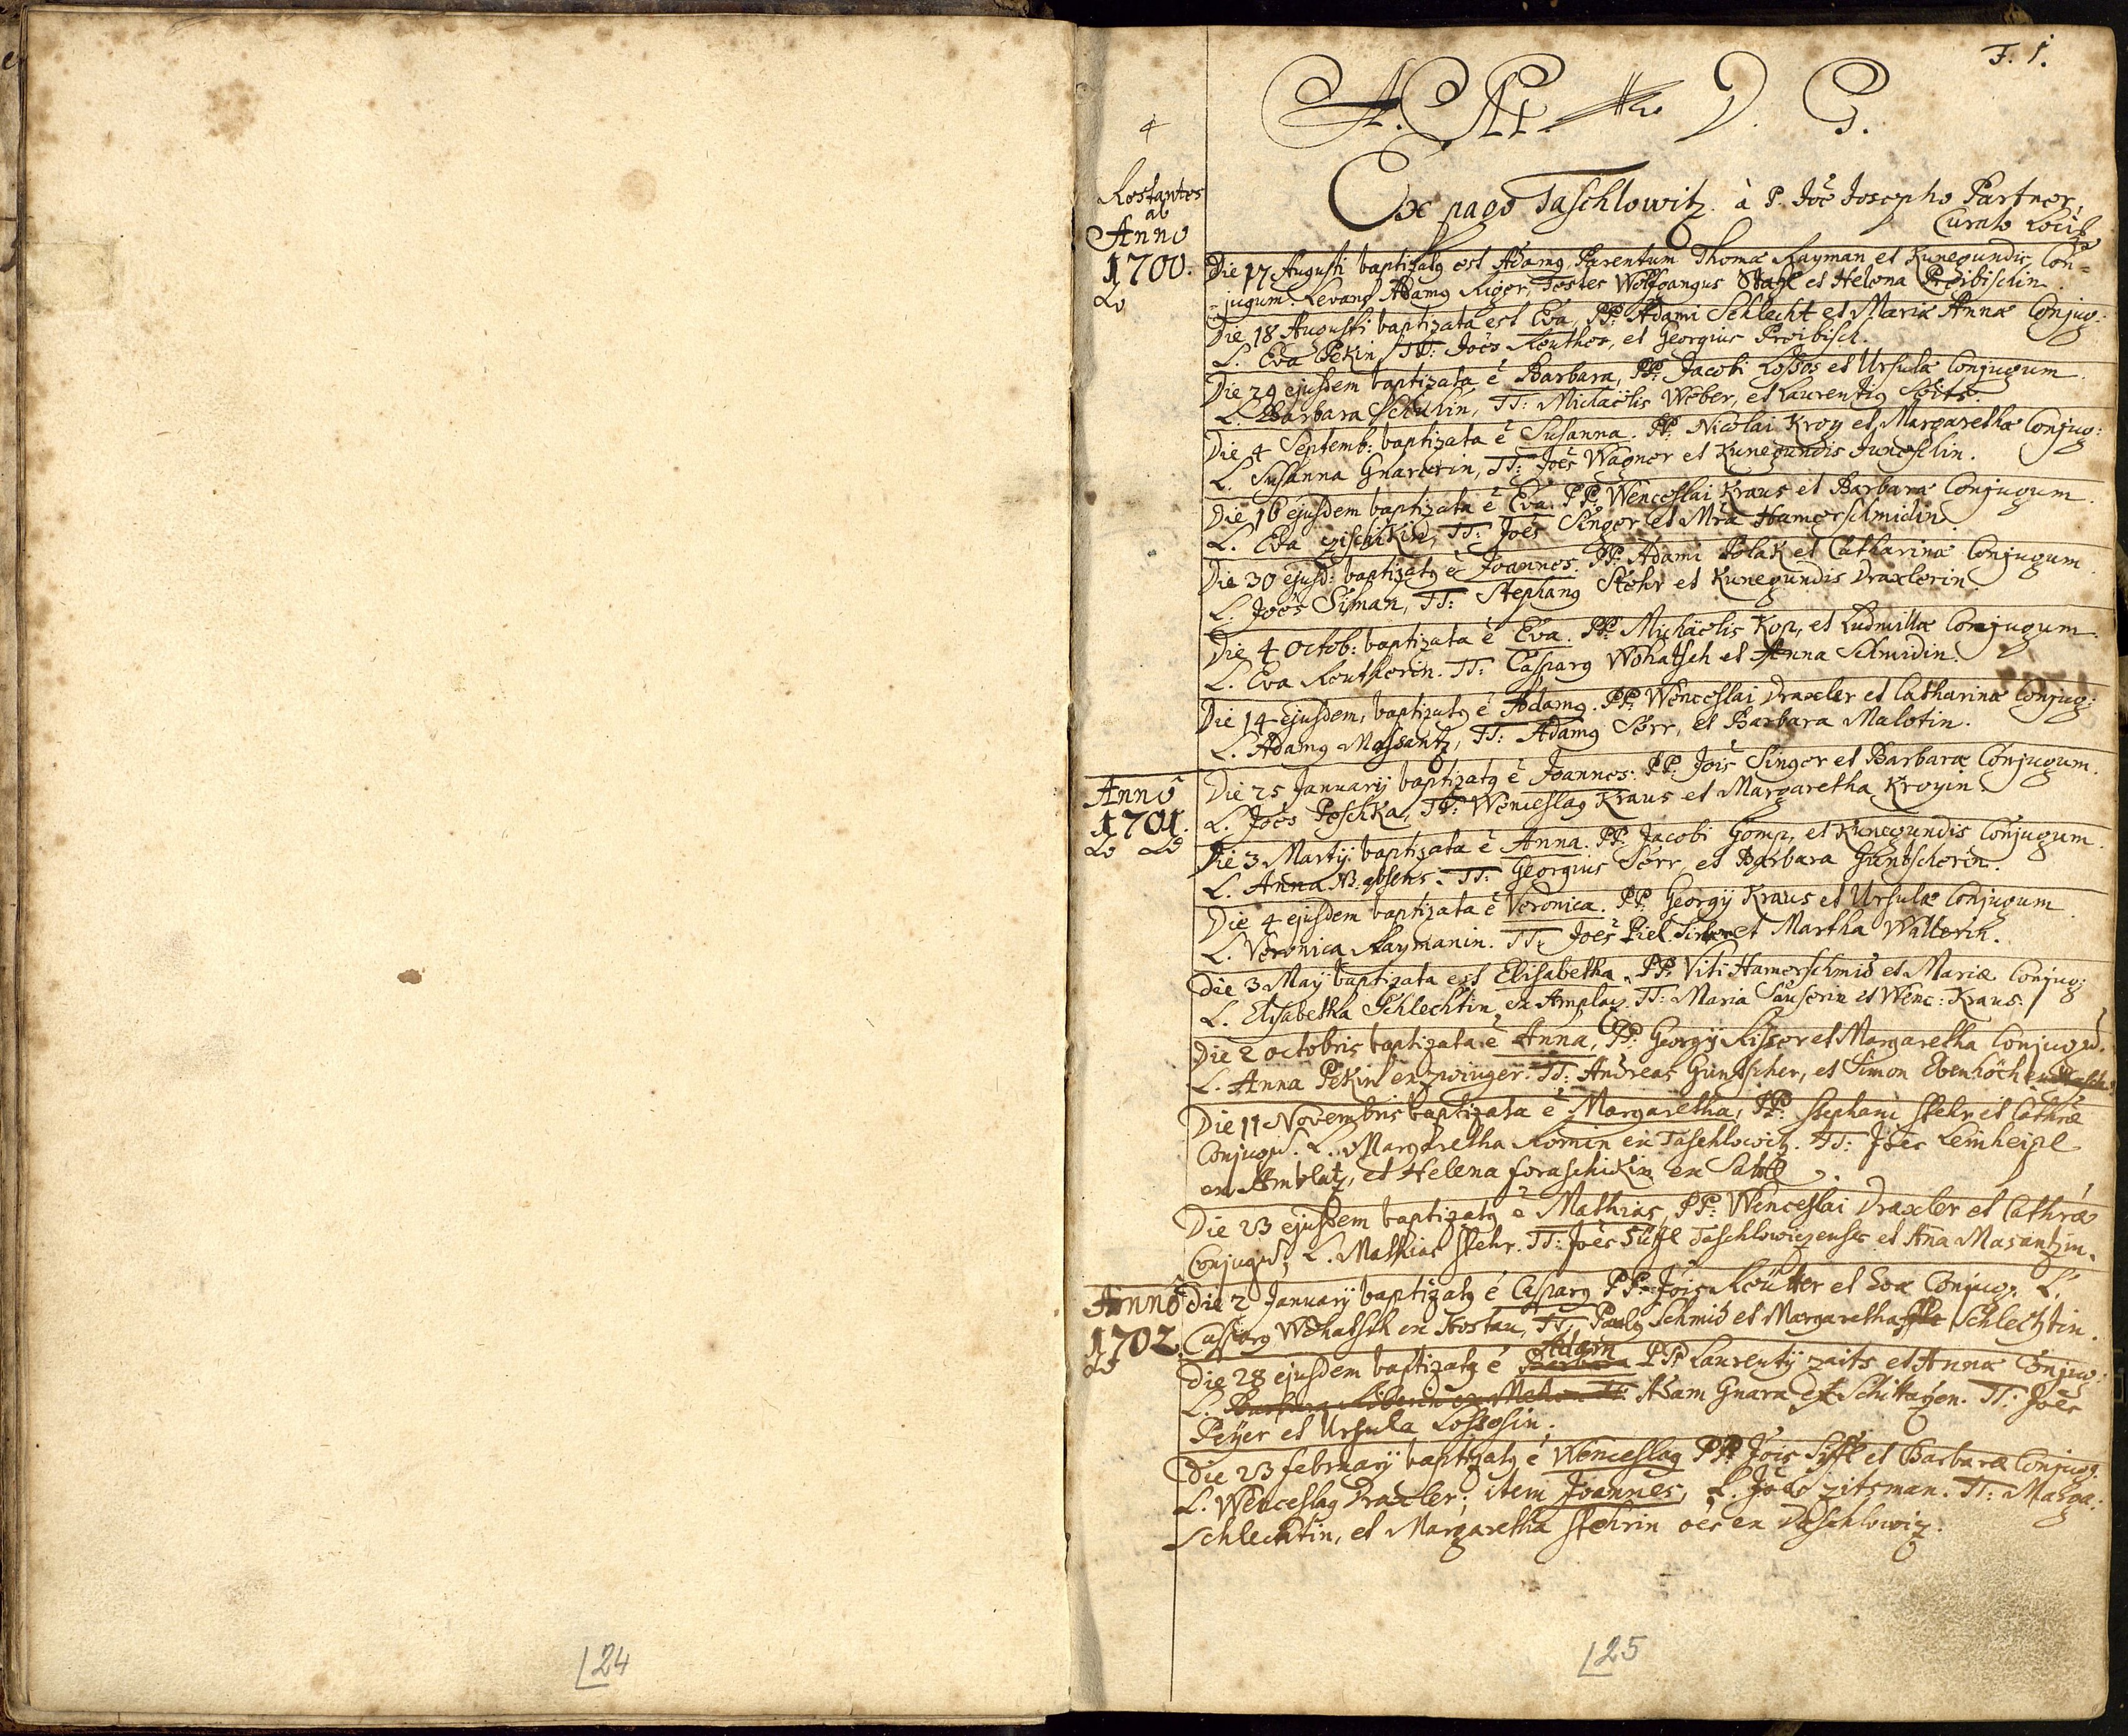 F. 1.
Ex pago Taschlowitz. à P. Joë Josepho Partner,
Curato Loci
Restantes
ab
Anno
1700.
Die 17 Augusti baptizatg est Adamg Parentum Thomæ Rayman et Kunegundis Con=
jugum. Levans Adamg Riger, Testes Wolfgangus Stahl et Helena Pröibischin.
Die 18 Augusti baptizata est Eva, PP: Adami Schlecht et Mariæ Annæ Conjug:
L. Eva Pekin, TT: Joës Reuther, et Georgius Pröibisch.
Die 29 ejusdem baptizata ë Barbara, PP: Jacobi Lossos et Ursulæ Conjugum.
L. Barbara Schulin, TT: Michaëlis Weber, et Laurentig Seits.
Die 4 Septemb: baptizata ë Susanna. PP: Nicolai Kroy et Margarethæ Conjug:
L. Susanna Gnarerin, TT: Joës Wagner et Kunegundis
Die 16 ejusdem baptizata ë Eva. PP: Wenceslai Kraus et Barbaræ Conjugum.
L. Eva TT: Joës Singer et Mra Hamerschmidin.
Die 30 ejusd: baptizatg ë Joannes. PP: Adami Polak et Catharinæ Conjugum.
L. Joës Siman, TT: Stephang Stöhr et Kunegundis Draxlerin.
Die 4 Octob: baptizata ë Eva. PP: Michaëlis Kop, et Ludmillæ Conjugum.
L. Eva Reutherin. TT: Casparg Wohatsch et Anna Schmidin.
Die 14 ejusdem, baptizatg ë Adamg. PP: Wenceslai Draxler et Catharinæ Conjug:
L. Adamg Massantz, TT: Adamg Serr, et Barbara Malotin.
Anno
1701.
Die 25 Januarij baptizatg ë Joannes: PP: Jois Singer et Barbaræ Conjugum.
L. Joës Peschka, TT: Wenceslag Kraus et Margaretha Kroyin.
Die 3 Martij baptizata ë Anna. PP. Jacobi Gomp, et Kunegundis Conjugum.
L. Anna absens. TT: Georgius Serr, et Barbara Guntscherin.
Die 4 ejusdem baptizata ë Veronica. PP. Georgij Kraus et Ursulæ Conjugum.
L. Veronica Raymanin. TT: Joës Piel et Martha Walterin.
Die 3 Maij baptizata est Elisabetha. PP: Viti Hamerschmid et Mariæ Conjug:
L. Elisabetha Schlechtin, ex Amplaz. TT: Maria Sauserin et Wenc: Kraus.
Die 2 octobris baptizata ë Anna, PP: Georgij Risser et Margaretha Conjugu.
L. Anna Pekin ex zwinger. TT: Andreas Guntscher, et Simon Ebenhöch
Die 11 Novembris baptizata ë Margaretha, PP: Stephani Stehr et Cathræ
Conjugu. L. Margaretha Romin ex Taschlowitz. TT: Joës Leinheipl
ex Amblatz, et Helena foraschikin ex
Die 23 ejusdem baptizatg ë Mathias, PP: Wenceslai Draxler et Cathræ
Conjugu, L. Mathias Stehr. TT: Joës Süssl Taschlowizensis et Ana Masantzin.
Anno
1702.
Die 2 Januarij baptizatg ë Casparg PP: Jois Reütter et Evæ Conjug. L.
Casparg Wohatsch ex Hostau, TT: Paulg Schmid et Margaretha Schlechtin.
Die 28 ejusdem baptizatg ë Adam PP: Laurentij zaits et Annæ Conjug:
L. Adam Gnara ex Schittarzen. TT: Joës
Peÿer et Ursula Lossosin.
Die 23 februarij baptizatg ë Wenceslag PP: Jois Sissl et Barbaræ Conjug.
L. Wenceslag Draxler; item Joannes, L. Joës zitsman. TT: Marga:
Schlechtin, et Margaretha Stehrin oës ex Daschlowiz.
24
25